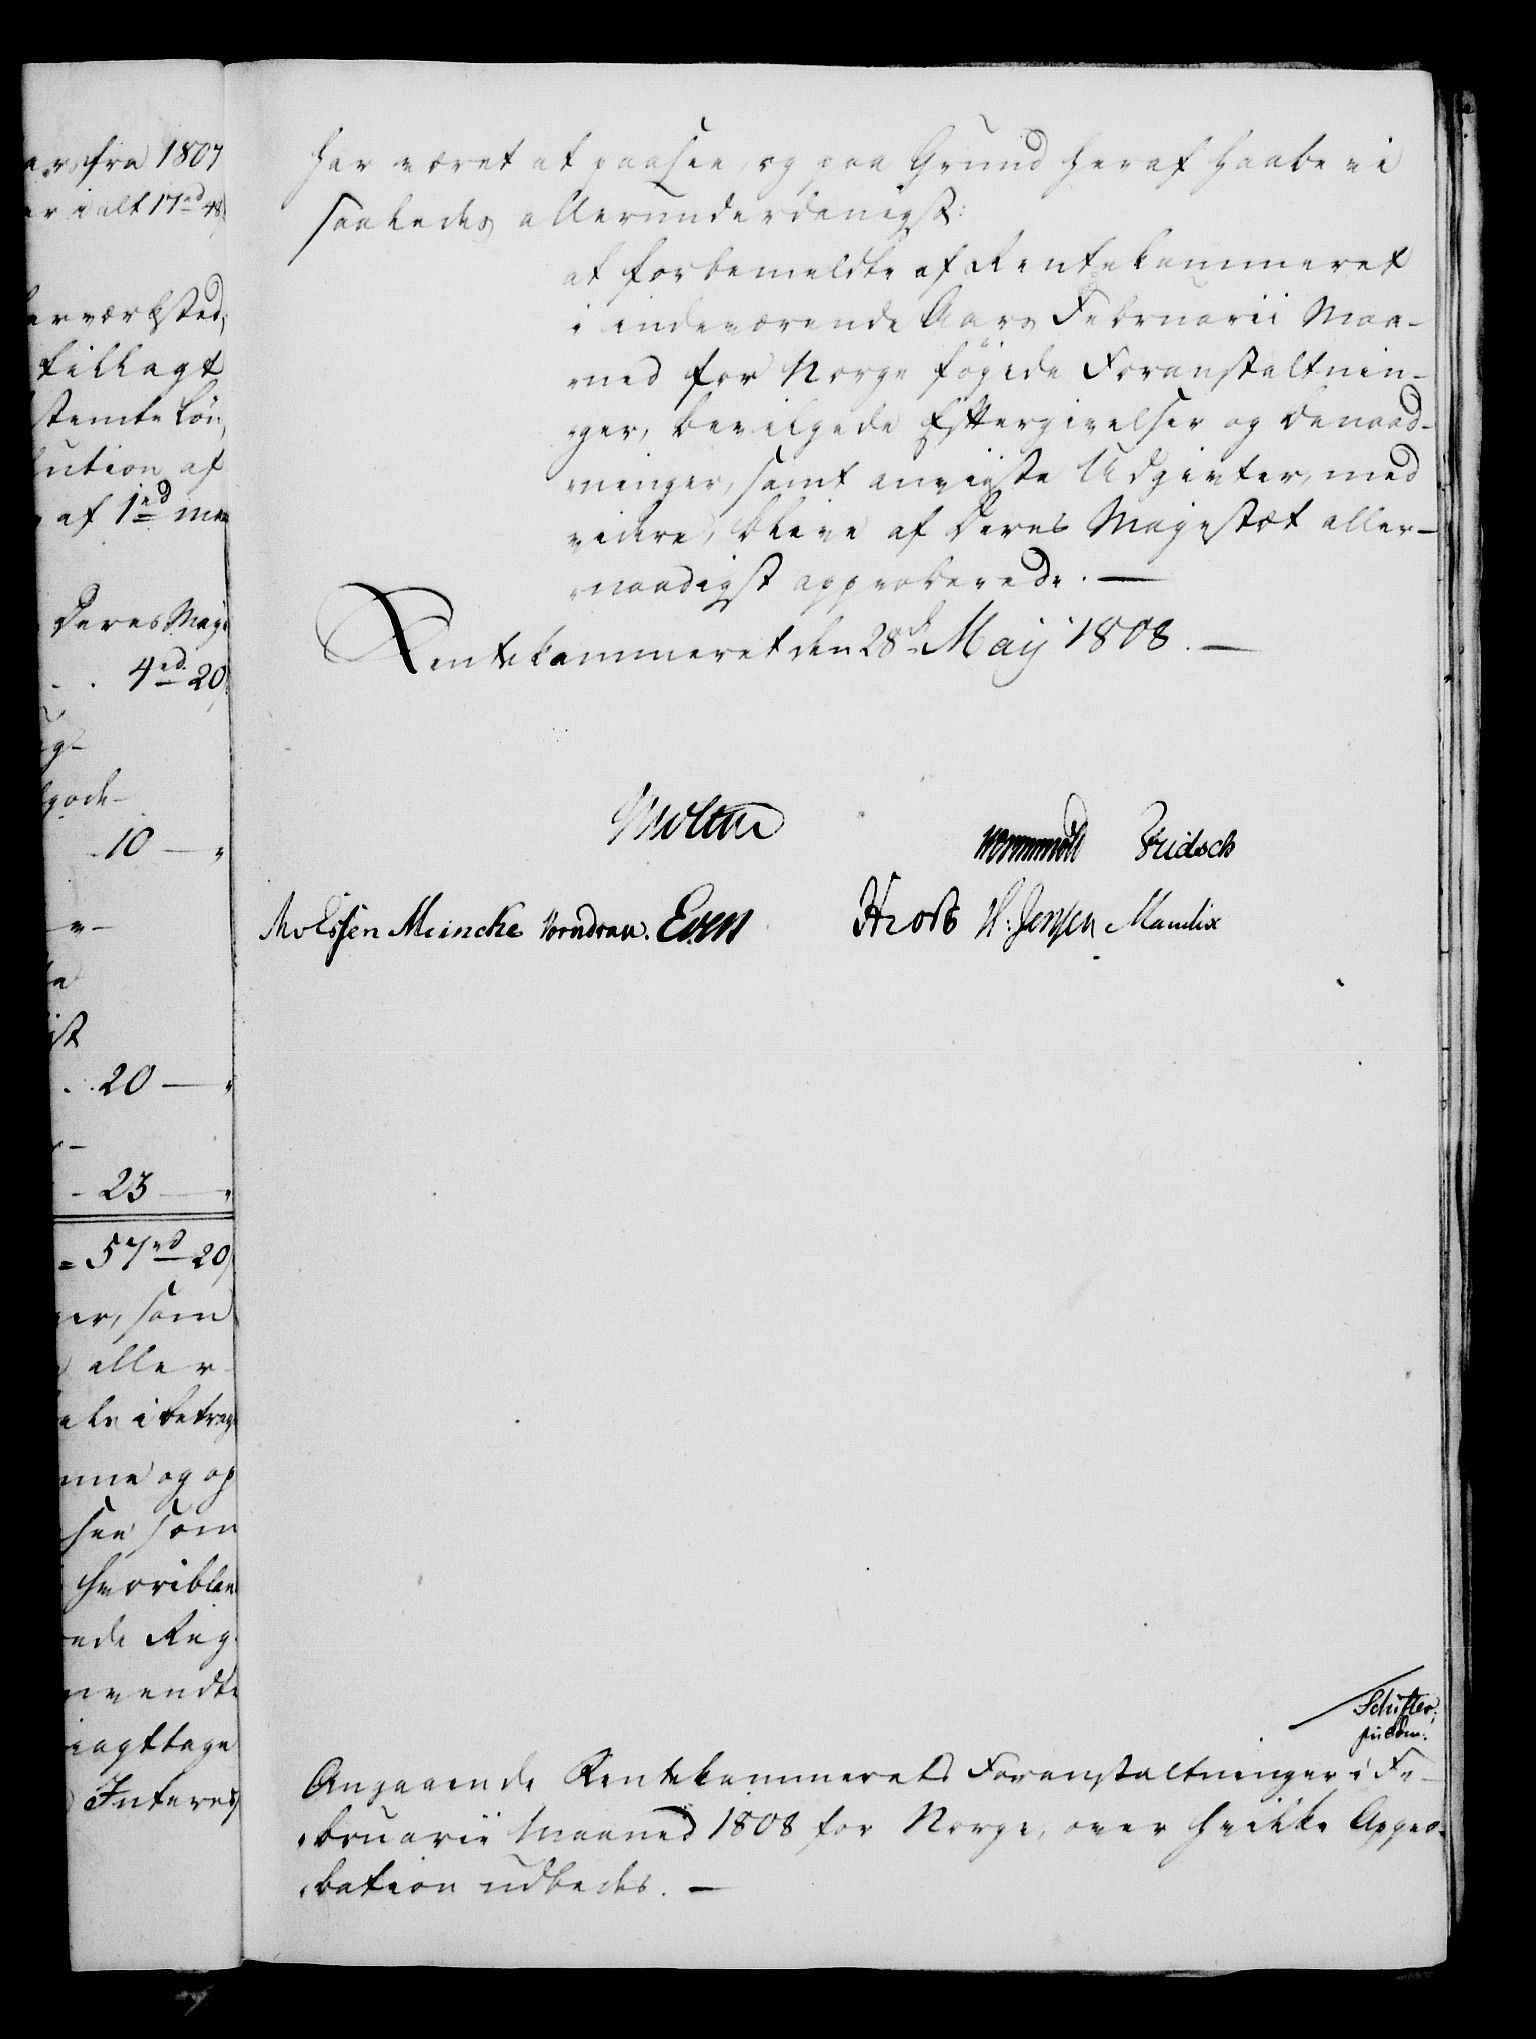 ar, fra 1807
er i alt 17rd 48
værksted,
tillagt
stemte Løn,
lution af
af 1rd
Deres Maj
4rd 20
10 —
20 —
23 —
= 57rd 20
ger, som
aller-
i betrag
og op
see som
hvoriblan
Reg
nvendte
iagttage
Interes
har været at paasee, og paa Grund heraf haabe vi
saaledes allerunderdanigst:
at forbemeldte af Rentekammeret
i indeværende Aars Februarii Maa-
ned for Norge føjede Foranstaltnin-
ger, bevilgede Eftergivelser og Benaad-
ninger, samt anviiste Udgivter, med
videre, bleve af Deres Majestæt aller-
naadigst approberede. —
Rentekammeret den 28de Maij 1808. —
Moltke
Wormskiold Fridsch
Meincke Vorndran. Even Krog H. Jensen Manthix
Schifter,
Angaaende Rentekammerets Foranstaltninger i Fe-
bruarii Maaned 1808 for Norge, over hvilke Appro-
bation udbedes. —